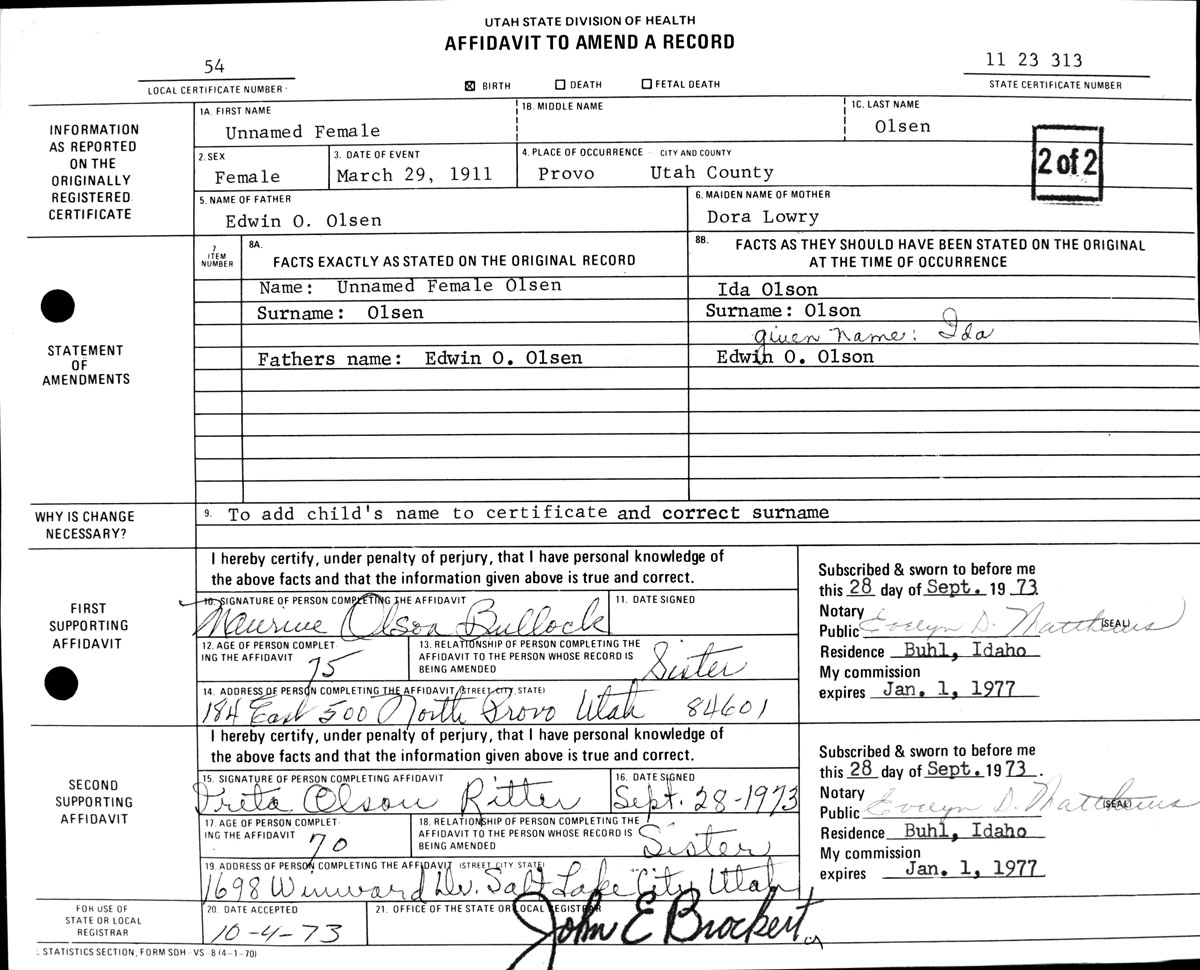 UTAH STATE DIVISION OF HEALTH
AFFIDAVIT TO AMEND A RECORD
54
LOCAL CERTIFICATE NUMBER
☒ BIRTH ☐ DEATH ☐ FETAL DEATH
11 23 313
STATE CERTIFICATE NUMBER
INFORMATION AS REPORTED ON THE ORIGINALLY REGISTERED CERTIFICATE
1A. FIRST NAME 1B. MIDDLE NAME 1C. LAST NAME
Unnamed Female Olsen
2. SEX 3. DATE OF EVENT 4. PLACE OF OCCURRENCE CITY AND COUNTY
Female March 29, 1911 Provo Utah County
2 of 2
5. NAME OF FATHER 6. MAIDEN NAME OF MOTHER
Edwin O. Olsen Dora Lowry
STATEMENT OF AMENDMENTS
7 ITEM NUMBER
8A. FACTS EXACTLY AS STATED ON THE ORIGINAL RECORD
8B. FACTS AS THEY SHOULD HAVE BEEN STATED ON THE ORIGINAL
AT THE TIME OF OCCURRENCE
Name: Unnamed Female Olsen Ida Olson
Surname: Olsen Surname: Olson
given name: Ida
Fathers name: Edwin O. Olsen Edwin O. Olson
WHY IS CHANGE NECESSARY?
9. To add child's name to certificate and correct surname
FIRST SUPPORTING AFFIDAVIT
I hereby certify, under penalty of perjury, that I have personal knowledge of
the above facts and that the information given above is true and correct.
10. SIGNATURE OF PERSON COMPLETING THE AFFIDAVIT 11. DATE SIGNED
Maurine Olson Bullock
12. AGE OF PERSON COMPLETING THE AFFIDAVIT 75
13. RELATIONSHIP OF PERSON COMPLETING THE
AFFIDAVIT TO THE PERSON WHOSE RECORD IS
BEING AMENDED Sister
14. ADDRESS OF PERSON COMPLETING THE AFFIDAVIT (STREET, CITY, STATE)
184 East 500 North Provo Utah 84601
Subscribed & sworn to before me
this 28 day of Sept. 19 73
Notary
Public Evelyn D. Matthews (SEAL)
Residence Buhl, Idaho
My commission
expires Jan. 1, 1977
SECOND SUPPORTING AFFIDAVIT
I hereby certify, under penalty of perjury, that I have personal knowledge of
the above facts and that the information given above is true and correct.
15. SIGNATURE OF PERSON COMPLETING AFFIDAVIT 16. DATE SIGNED
Freta Olson Ritter Sept. 28-1973
17. AGE OF PERSON COMPLETING THE AFFIDAVIT 70
18. RELATIONSHIP OF PERSON COMPLETING THE
AFFIDAVIT TO THE PERSON WHOSE RECORD IS
BEING AMENDED Sister
19. ADDRESS OF PERSON COMPLETING THE AFFIDAVIT (STREET, CITY, STATE)
1698 Winward Dr. Salt Lake City Utah
Subscribed & sworn to before me
this 28 day of Sept. 19 73.
Notary
Public Evelyn D. Matthews (SEAL)
Residence Buhl, Idaho
My commission
expires Jan. 1, 1977
FOR USE OF STATE OR LOCAL REGISTRAR
20. DATE ACCEPTED 21. OFFICE OF THE STATE OR LOCAL REGISTRAR
10-4-73 John E Brockert
STATISTICS SECTION, FORM SDH-VS-8 (4-1-70)